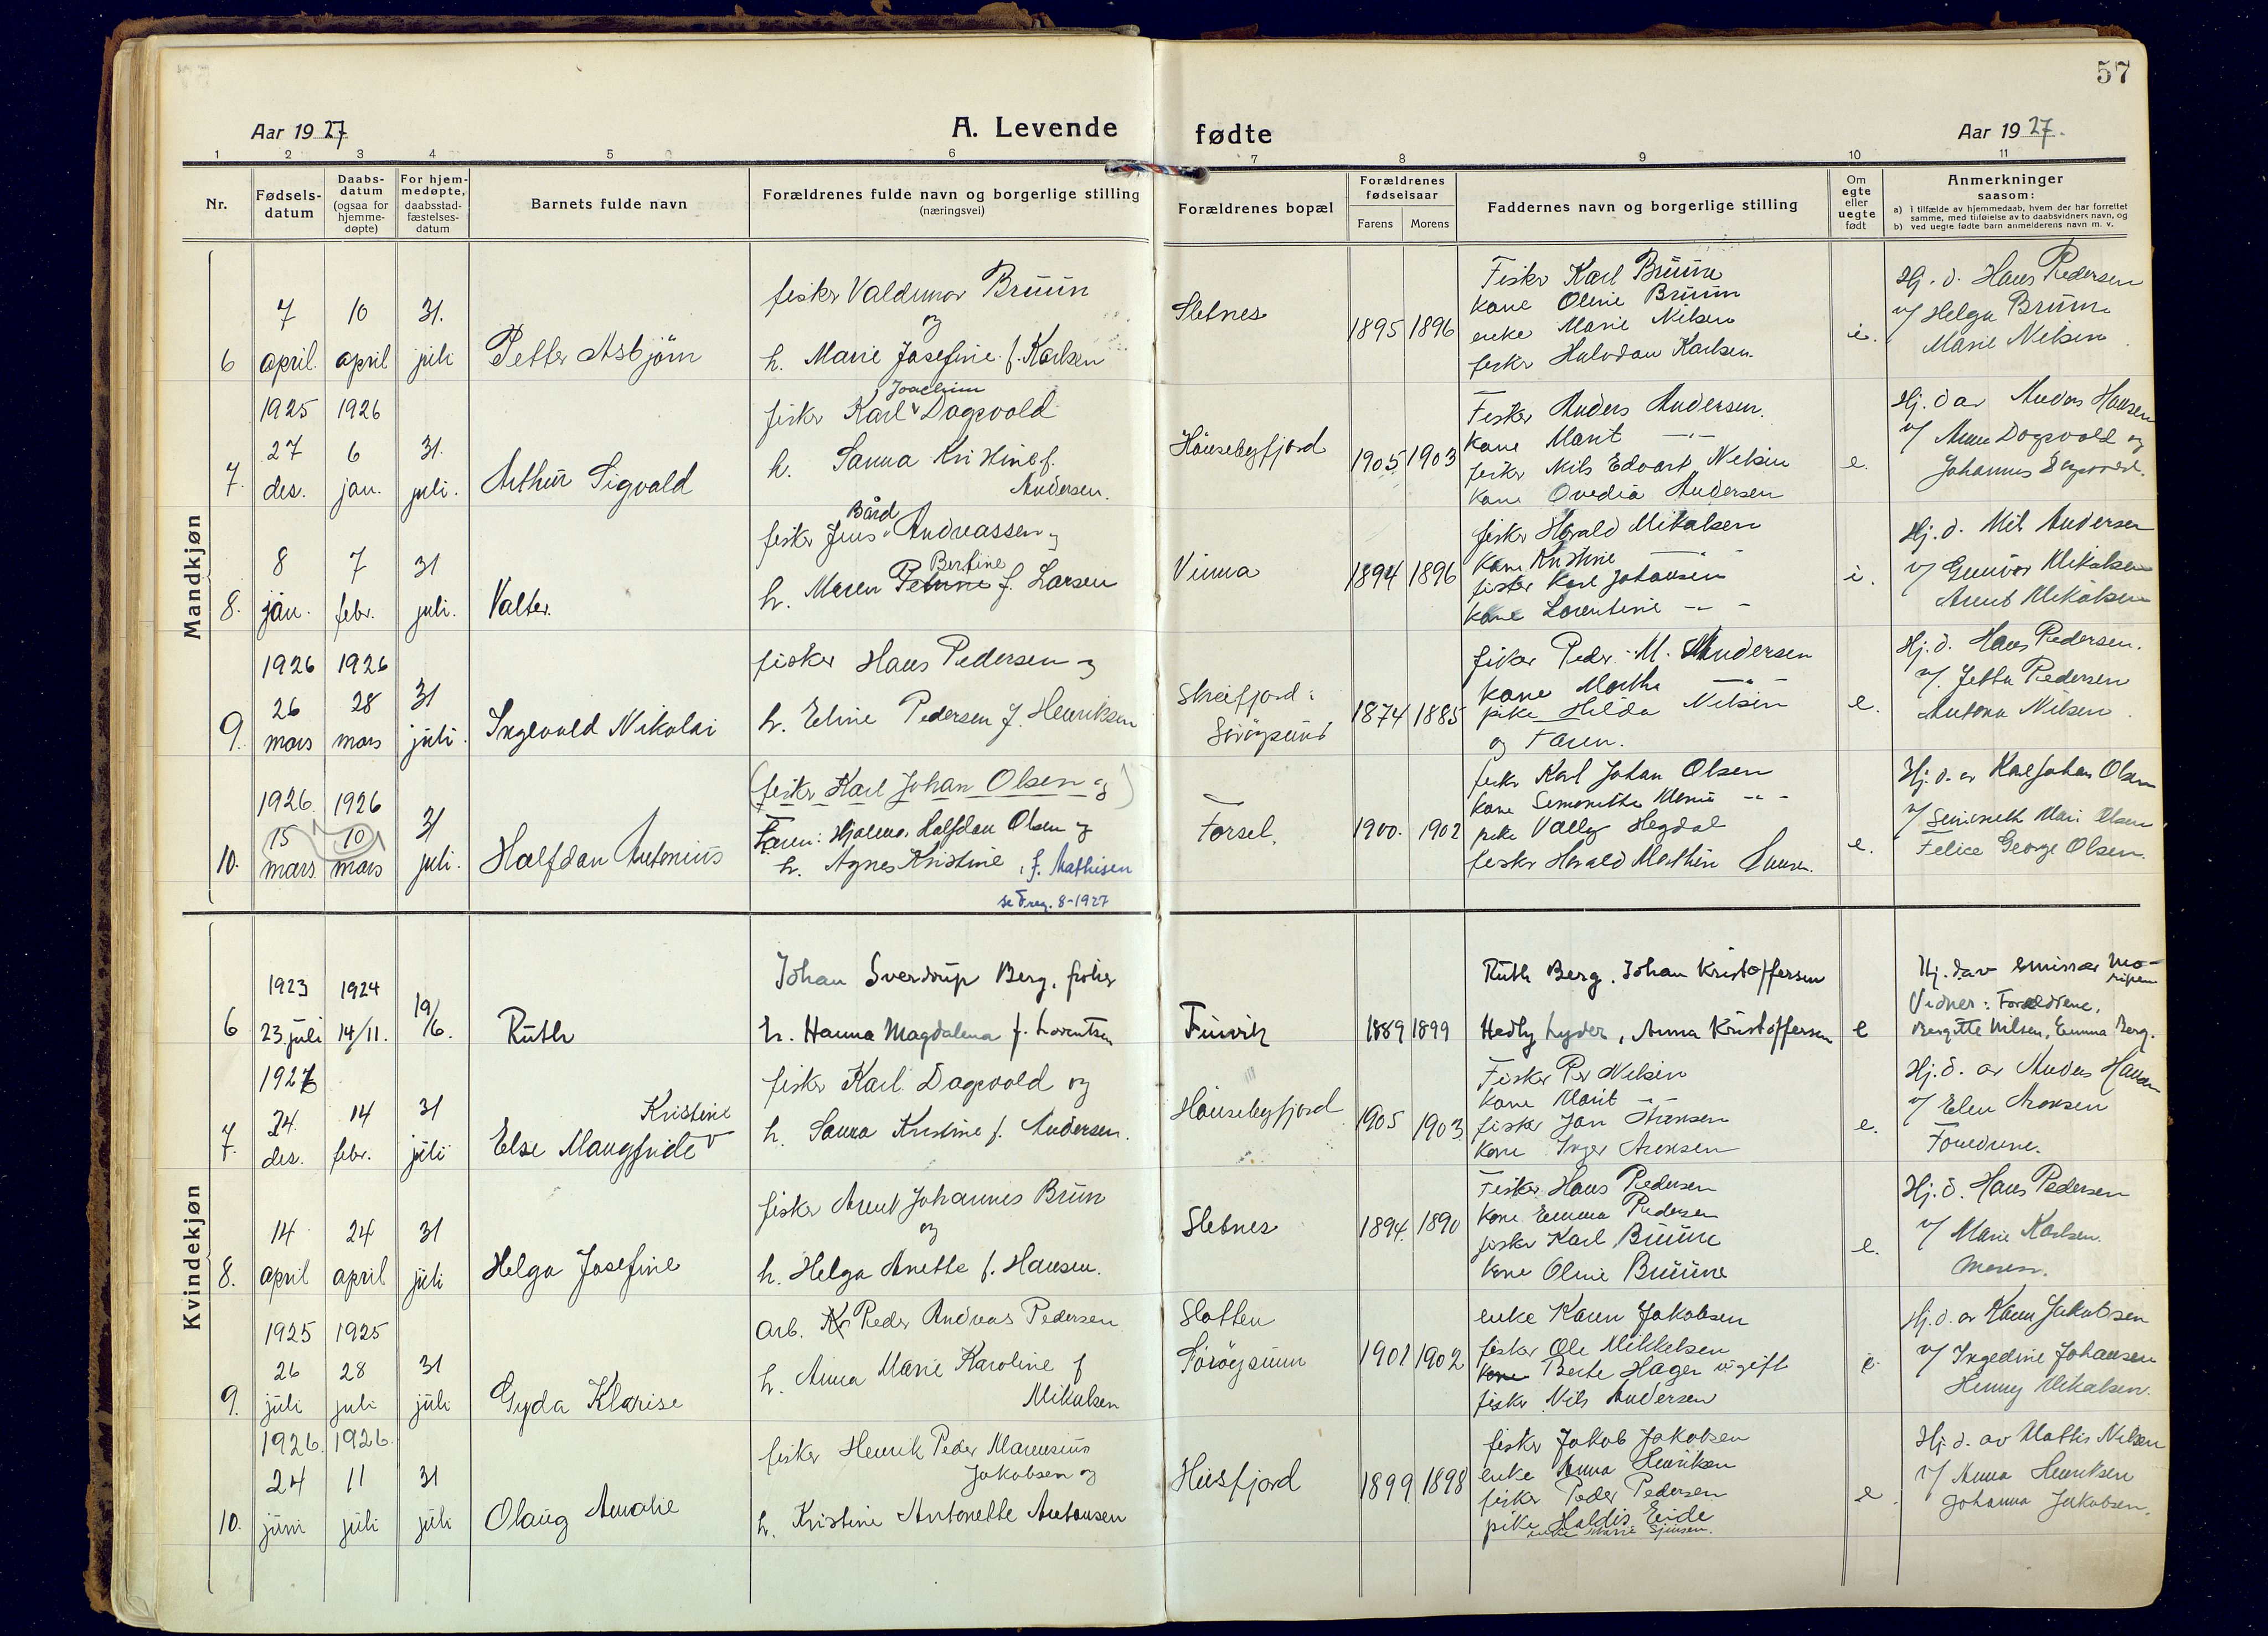 57
Aar 1927
A. Levende fødte
Aar 1927.
1 2 3 4 5 6 7 8 9 10 11
Nr.
Fødsels-
datum
Daabs-
datum
(ogsaa for
hjemme-
døpte)
For hjem-
medøpte,
daabsstad-
fæstelses-
datum
Barnets fulde navn
Forældrenes fulde navn og borgerlige stilling
(næringsvei)
Forældrenes bopæl
Forældrenes
fødselsaar
Farens Morens
Faddernes navn og borgerlige stilling
Om
egte
eller
uegte
født
Anmerkninger
saasom:
a) i tilfælde av hjemmedaab, hvem der har forrettet
samme, med tilføielse av to daabsvidners navn, og
b) ved uegte fødte barn anmelderens navn m. v.
Mandkjøn
6
7 april
10 april
31. juli
Petter Asbjørn
fisker Valdemar Bruun
og
h. Marie Josefine f. Karlsen
Sletnes
1895 1896
Fisker Karl Bruun
kone Oline Bruun
enke Marie Nilsen
fisker Halvdan Karlsen.
Hj. d. Hans Pedersen
v/ Helga Bruun
Marie Nilsen
7.
1925 27 des.
1926 6 jan.
31. juli.
Arthur Sigvald
fisker Karl Joachim Dagsvold
h. Sanna Kristine f.
Andersen.
Hønsebyfjord
1905 1903
Fisker Anders Andersen.
Kone Marit -"-
fisker Nils Edvart Nilsen
Kone Ovedia Andersen
e.
Hj. d av Anders Hansen
v/ Anna Dagsvold og
Johannes Dagsvold.
8.
8 jan.
7 febr.
31 juli.
Valter.
fisker Jens Bård Andreassen og
h. Maren Petrine Bertine f. Larsen
Vinna
1894 1896
fisker Harald Mikalsen
Kone Kristine -"-
fisker Karl Johansen
Kone Lorentine -"-
Hj. d. Nils Andersen
v/ Gunvor Mikalsen
Arent Mikalsen
9.
1926 26 mars
1926 28 mars
31 juli.
Ingevald Nikolai
fisker Hans Pedersen og
h. Eline Pedersen f. Henriksen
Skreifjord i
Sørøysund
1874 1885
fisker Peder M. Andersen
kone Marthe -"-
pike Hilda Nilsen
og Faren.
e.
Hj. d. Hans Pedersen.
v/. Jetta Pedersen
Antona Nilsen.
10.
1926 15 mars
1926 10 mars
31 juli.
Halfdan Antonius
(fisker Karl Johan Olsen og)
Faren: Hjalmar Halfdan Olsen og
h. Agnes Kristine, f. Mathisen
se d.reg. 8-1927
Forsøl.
1900. 1902
fisker Karl Johan Olsen
kone Simonette Marie -"-
pike Vally Hegdal
fisker Harald Marthin Hansen.
e.
Hj. d. av Karl Johan Olsen
v/ Simonette Mari Olsen
Felice George Olsen.
Kvindekjøn
6
1923 23. juli
1924 14/11.
19/6.
Ruth
Johan Sverdrup Berg, fisker
h. Hanna Magdalena f. Lorentsen
Finvik
1889 1899
Ruth Berg, Johan Kristoffersen
Hedly Lyder, Anna Kristoffersen
e
Hj. d av emissær
Vidner: Forældrene,
Bergitte Nilsen, Emma Berg.
7.
1926
24. des.
14 febr.
31 juli
Else Maugfride Kristine
fisker Karl Dagsvold og
h. Sanna Kristine f. Andersen.
Hønsebyfjord
1905 1903.
Fisker Per Nilsen
Kone Marit -"-
fisker Jan Aronsen
Kone Inger Aronsen
e.
Hj. d. av Anders Hansen
v/ Elen Aronsen
Forældrene.
8.
14 april
24 april
31 juli
Helga Josefine
fisker Arent Johannes Brun
og
h. Helga Anette f. Hansen.
Sletnes
1894. 1890
Fisker Hans Pedersen
Kone Emma Pedersen
fisker Karl Bruun
kone Oline Bruun
e.
Hj. d. Hans Pedersen
v/ Marie Karlsen.
Moren.
9.
1925 26 juli
1925 28 juli
31 juli
Gyda Klarise
Arb. Peder Andreas Pedersen
h. Anna Marie Karoline f
Mikalsen
Slotten
Sørøysunn
1901 1902
enke Karen Jakobsen
fisker Ole Mikkelsen
kone Berte Hagen ugift
fisker Nils Andersen
e.
Hj. d. av Karen Jakobsen
v/ Ingedine Johansen
Henny Mikalsen.
10.
1926. 24 juni
1926. 11 juli
31 juli
Olaug Amalie
fisker Henrik Peder Marensius
Jakobsen og
h. Kristine Antonette Antonsen
Husfjord
1899 1898
fisker Jakob Jakobsen
enke Anna Henriksen
fisker Peder Pedersen
pike Haldis Eide
e.
Hj. d. av Mattis Nilsen
v/ Anna Henriksen
Johanna Jakobsen.